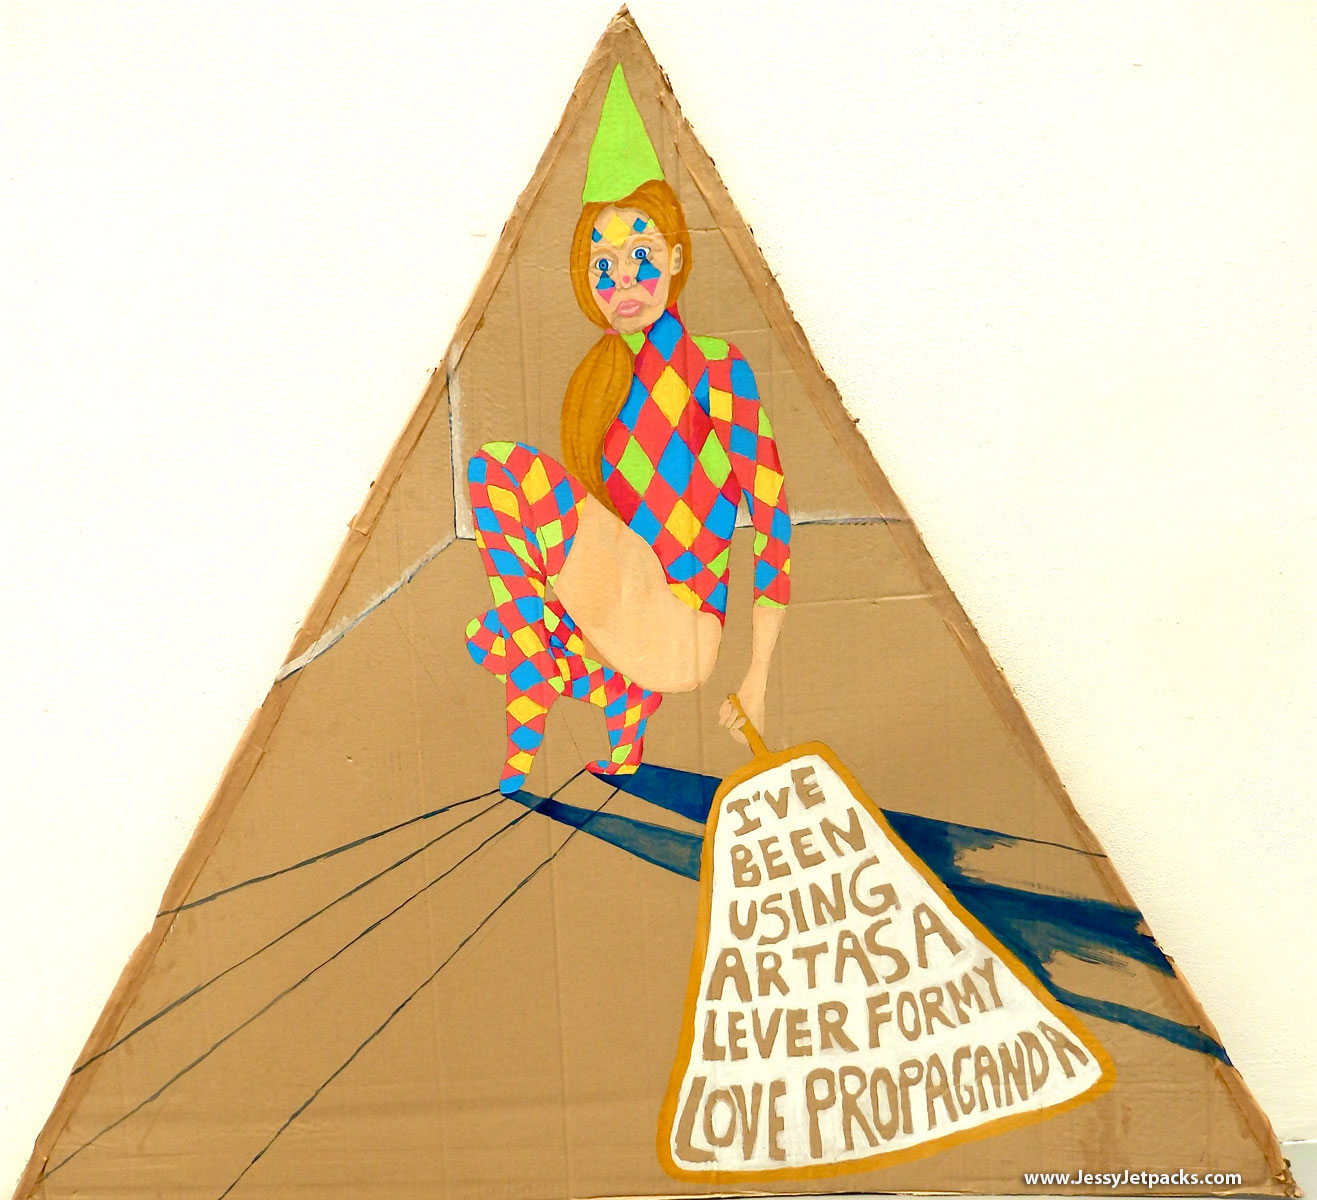 I'VE
BEEN
USING
ART AS A
LEVER FOR MY
LOVE PROPAGANDA
www.JessyJetpacks.com